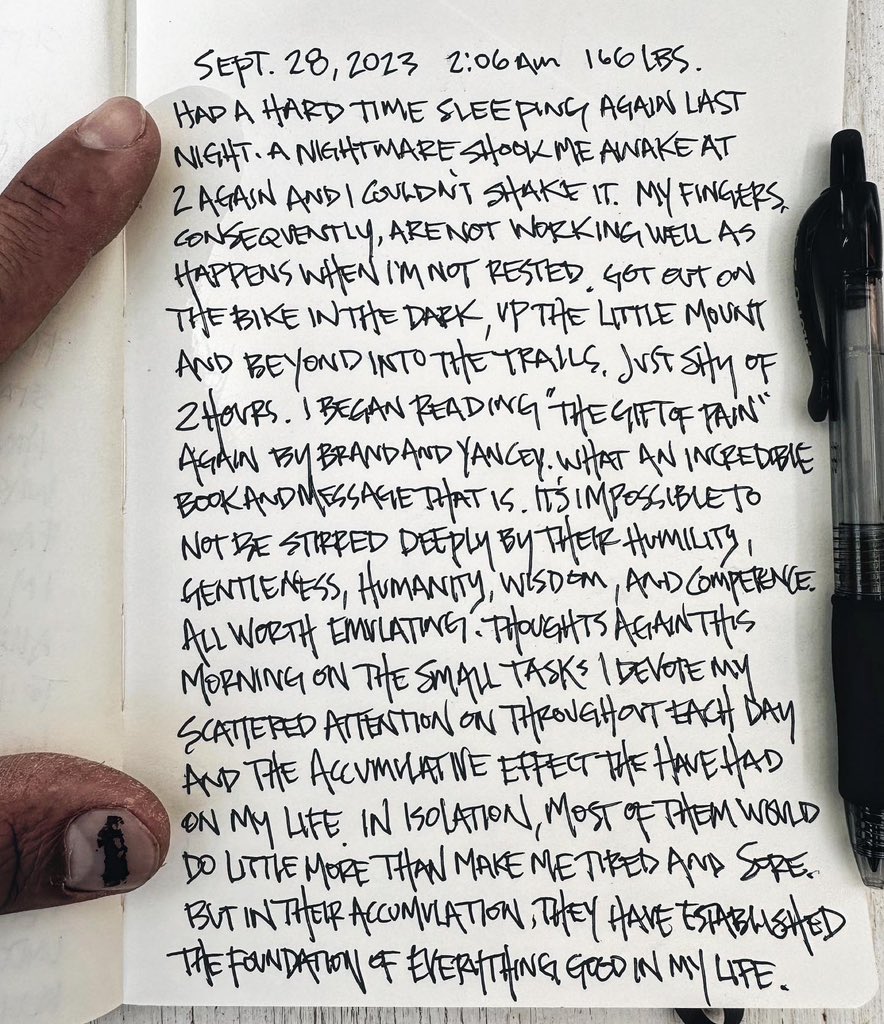 SEPT. 28, 2023 2:06 AM 166 LBS.
HAD A HARD TIME SLEEPING AGAIN LAST
NIGHT. A NIGHTMARE SHOOK ME AWAKE AT
2 AGAIN AND I COULDN'T SHAKE IT. MY FINGERS,
CONSEQUENTLY, ARE NOT WORKING WELL AS
HAPPENS WHEN I'M NOT RESTED. GOT OUT ON
THE BIKE IN THE DARK, UP THE LITTLE MOUNT
AND BEYOND INTO THE TRAILS. JUST SHY OF
2 HOURS. I BEGAN READING "THE GIFT OF PAIN"
AGAIN BY BRAND AND YANCEY. WHAT AN INCREDIBLE
BOOK AND MESSAGE THAT IS. IT'S IMPOSSIBLE TO
NOT BE STIRRED DEEPLY BY THEIR HUMILITY,
GENTLENESS, HUMANITY, WISDOM, AND COMPETENCE.
ALL WORTH EMULATING. THOUGHTS AGAIN THIS
MORNING ON THE SMALL TASKS I DEVOTE MY
SCATTERED ATTENTION ON THROUGHOUT EACH DAY
AND THE ACCUMULATIVE EFFECT THE HAVE HAD
ON MY LIFE. IN ISOLATION, MOST OF THEM WOULD
DO LITTLE MORE THAN MAKE ME TIRED AND SORE.
BUT IN THEIR ACCUMULATION, THEY HAVE ESTABLISHED
THE FOUNDATION OF EVERYTHING GOOD IN MY LIFE.